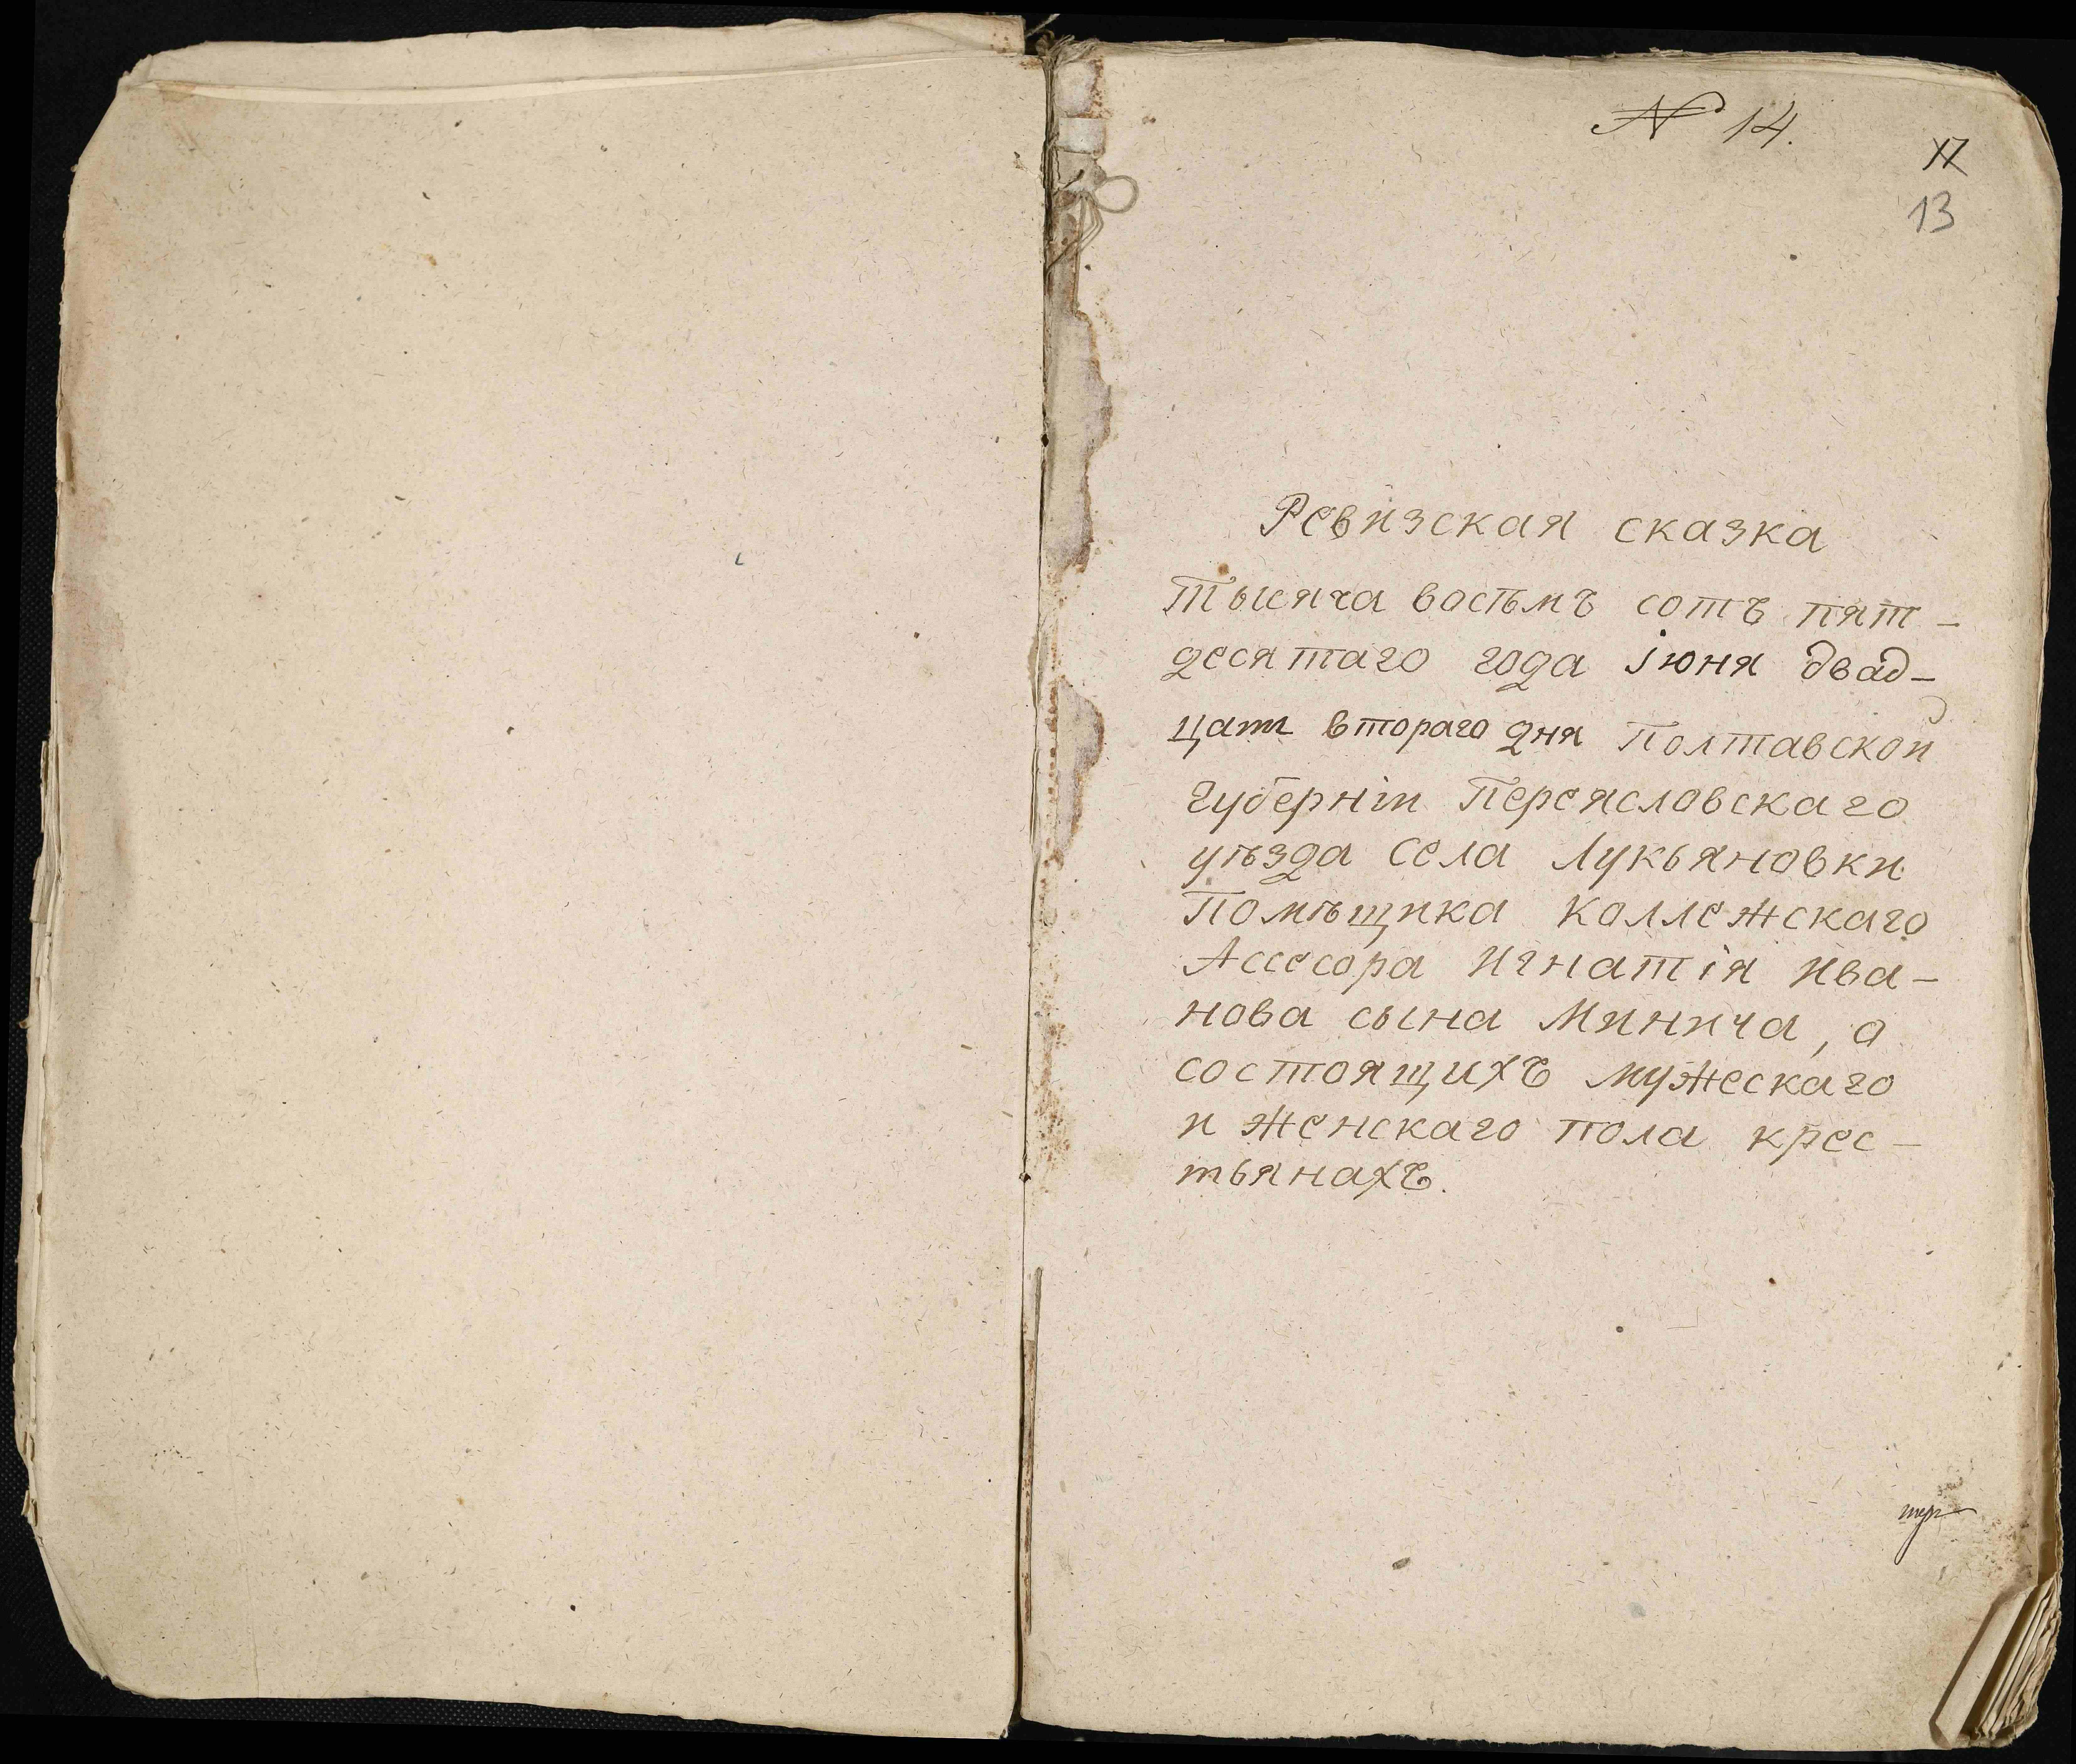 № 14.
13
Ревизская сказка
тысяча восѣмъ сотъ пят-
десятаго года Іюня двад-
цать втораго дня Полтавской
Губерніи Переясловскаго
уѣзда Села Лукьяновки
Помѣщика Коллежскаго
Ассесора Игнатія Ива-
нова сына Минича, о
состоящихъ мужескаго
и женскаго пола крес-
тьянахъ.